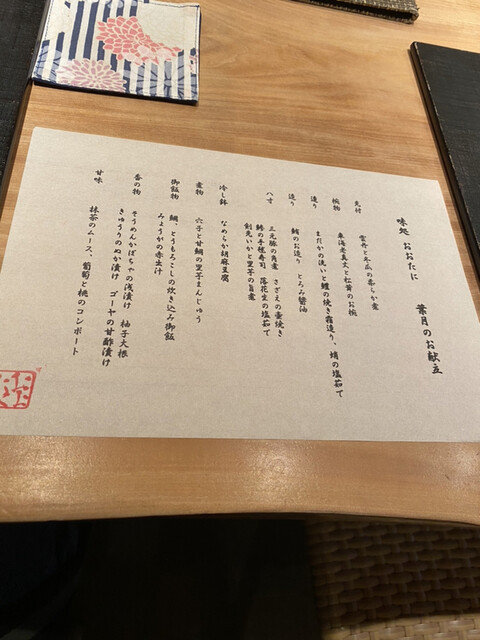 味処 おおたに 葉月のお献立
先付
雲丹と冬瓜の柔らか煮
椀物
車海老真丈と松茸のお椀
造り
まだかの洗いと鱧の焼き霜造り、蛸の塩茹で
造り
鰹のお造り とろみ醤油
八寸
三元豚の角煮 さざえの壷焼き
鯵の手毬寿司 落花生の塩茹で
剣先いかと里芋の旨煮
冷し鉢
なめらか胡麻豆腐
煮物
穴子と甘鯛の里芋まんじゅう
御飯物
鯛、とうもろこしの炊き込み御飯
みょうがの赤出汁
香の物
そうめんかぼちゃの浅漬け 柚子大根
きゅうりのぬか漬け ゴーヤの甘酢漬け
甘味
抹茶のムース、葡萄と桃のコンポート